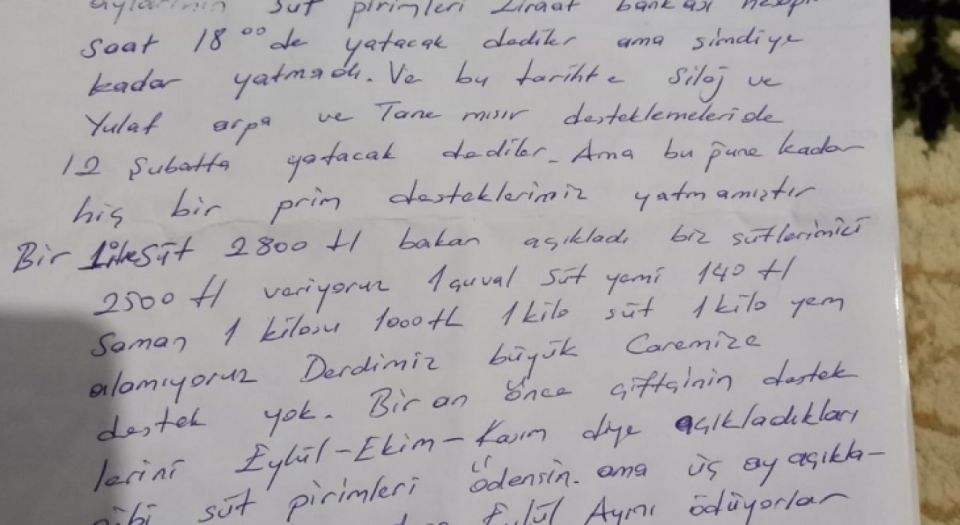 aylarının süt pirimleri Ziraat bankası
saat 18⁰⁰ de yatacak dediler ama şimdiye
kadar yatmadı. Ve bu tarihte Silaj ve
Yulaf arpa ve Tane mısır desteklemeleride
12 Şubatta yatacak dediler. Ama bu güne kadar
hiç bir prim desteklerimiz yatmamıştır
Bir Litre Süt 2800 tl bakan açıkladı biz sütlerimizi
2500 tl veriyoruz 1 çuval Süt yemi 140 tl
Saman 1 kilosu 1000 tl 1 kilo süt 1 kilo yem
alamıyoruz Derdimiz büyük Caremize
destek yok. Bir an önce çiftçinin destek
lerini Eylül-Ekim-Kasım diye açıkladıkları
gibi süt pirimleri ödensin. ama üç ay açıkla-
Eylül Ayını ödüyorlar